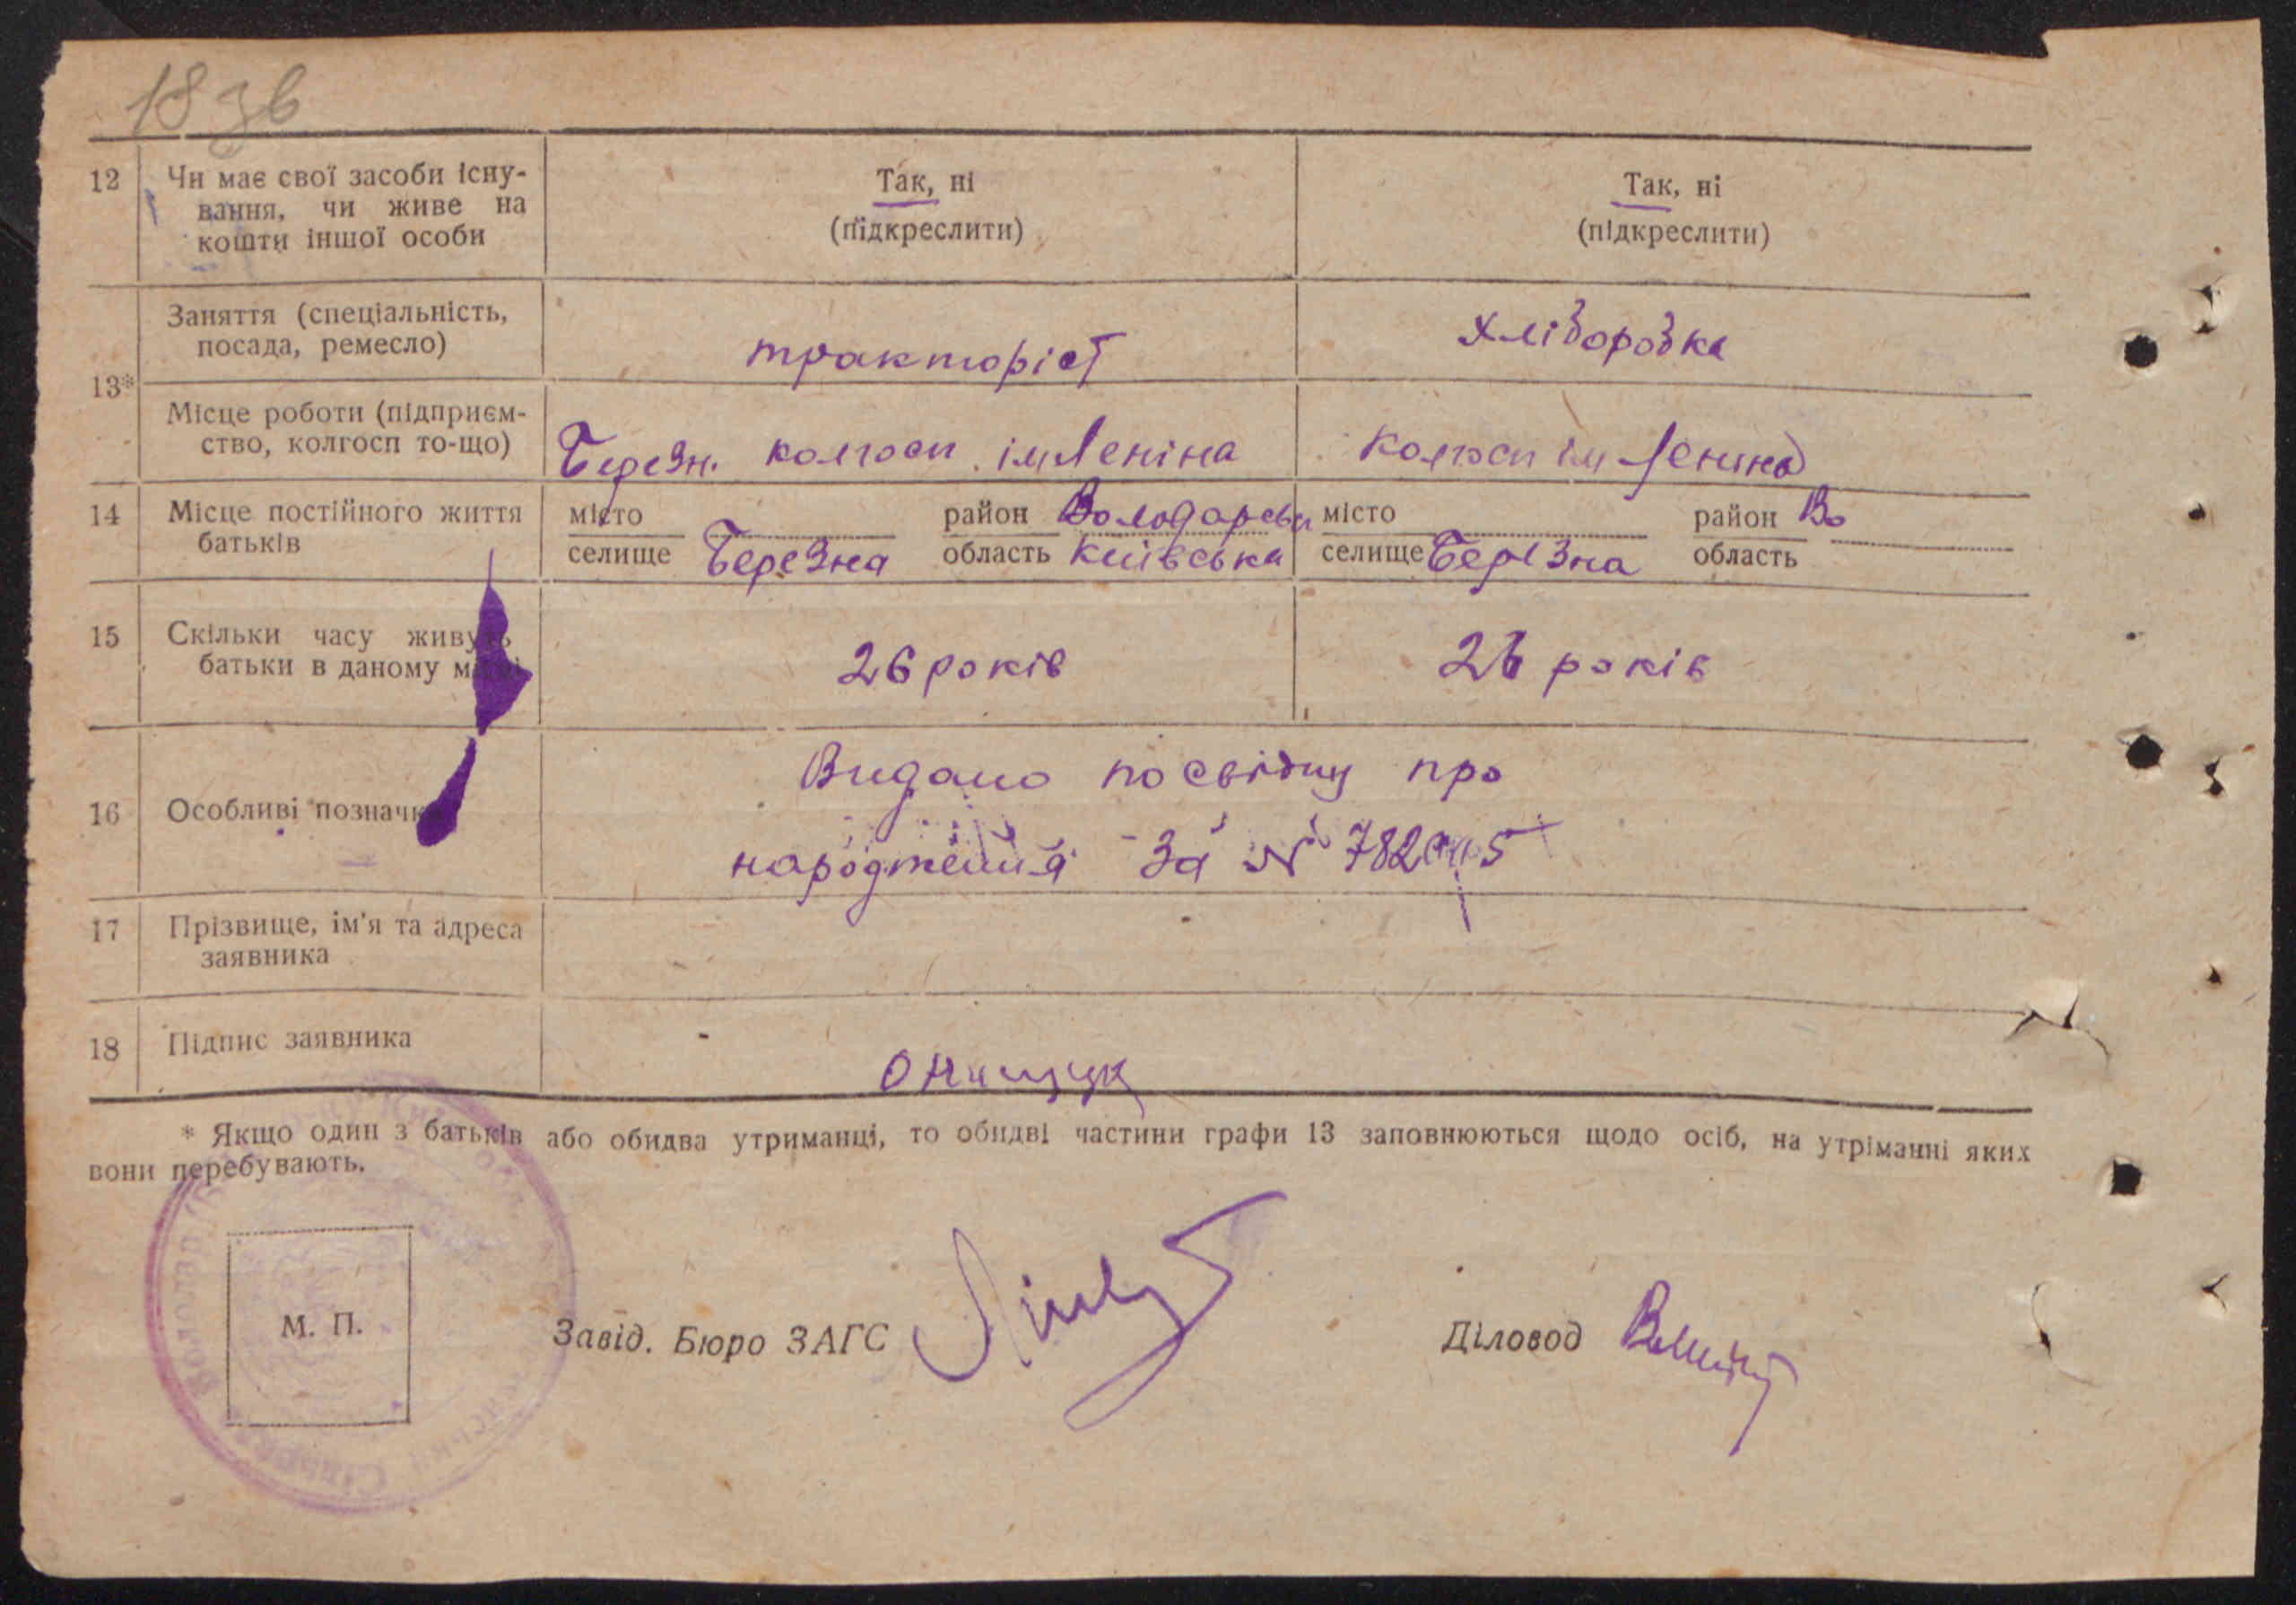 18 зв
12 Чи має свої засоби існу- Так, ні Так, ні
вання, чи живе на (підкреслити) (підкреслити)
кошти іншої особи
13* Заняття (спеціальність, тракторіст хліборобка
посада, ремесло)
Місце роботи (підприєм- Березн. колгосп ім Леніна колгосп ім Леніна
ство, колгосп то-що)
14 Місце постійного життя місто район Володарськ місто район Во
батьків селище Березна область Київська селище Березна область
15 Скільки часу живуть 26 років 26 років
батьки в даному місці
16 Особливі позначки Видано посвідку про
народження за №
17 Прізвище, ім'я та адреса
заявника
18 Підпис заявника Онищук
* Якщо один з батьків або обидва утриманці, то обидві частини графи 13 заповнюються щодо осіб, на утріманні яких
вони перебувають.
М. П.
Завід. Бюро ЗАГС Діловод